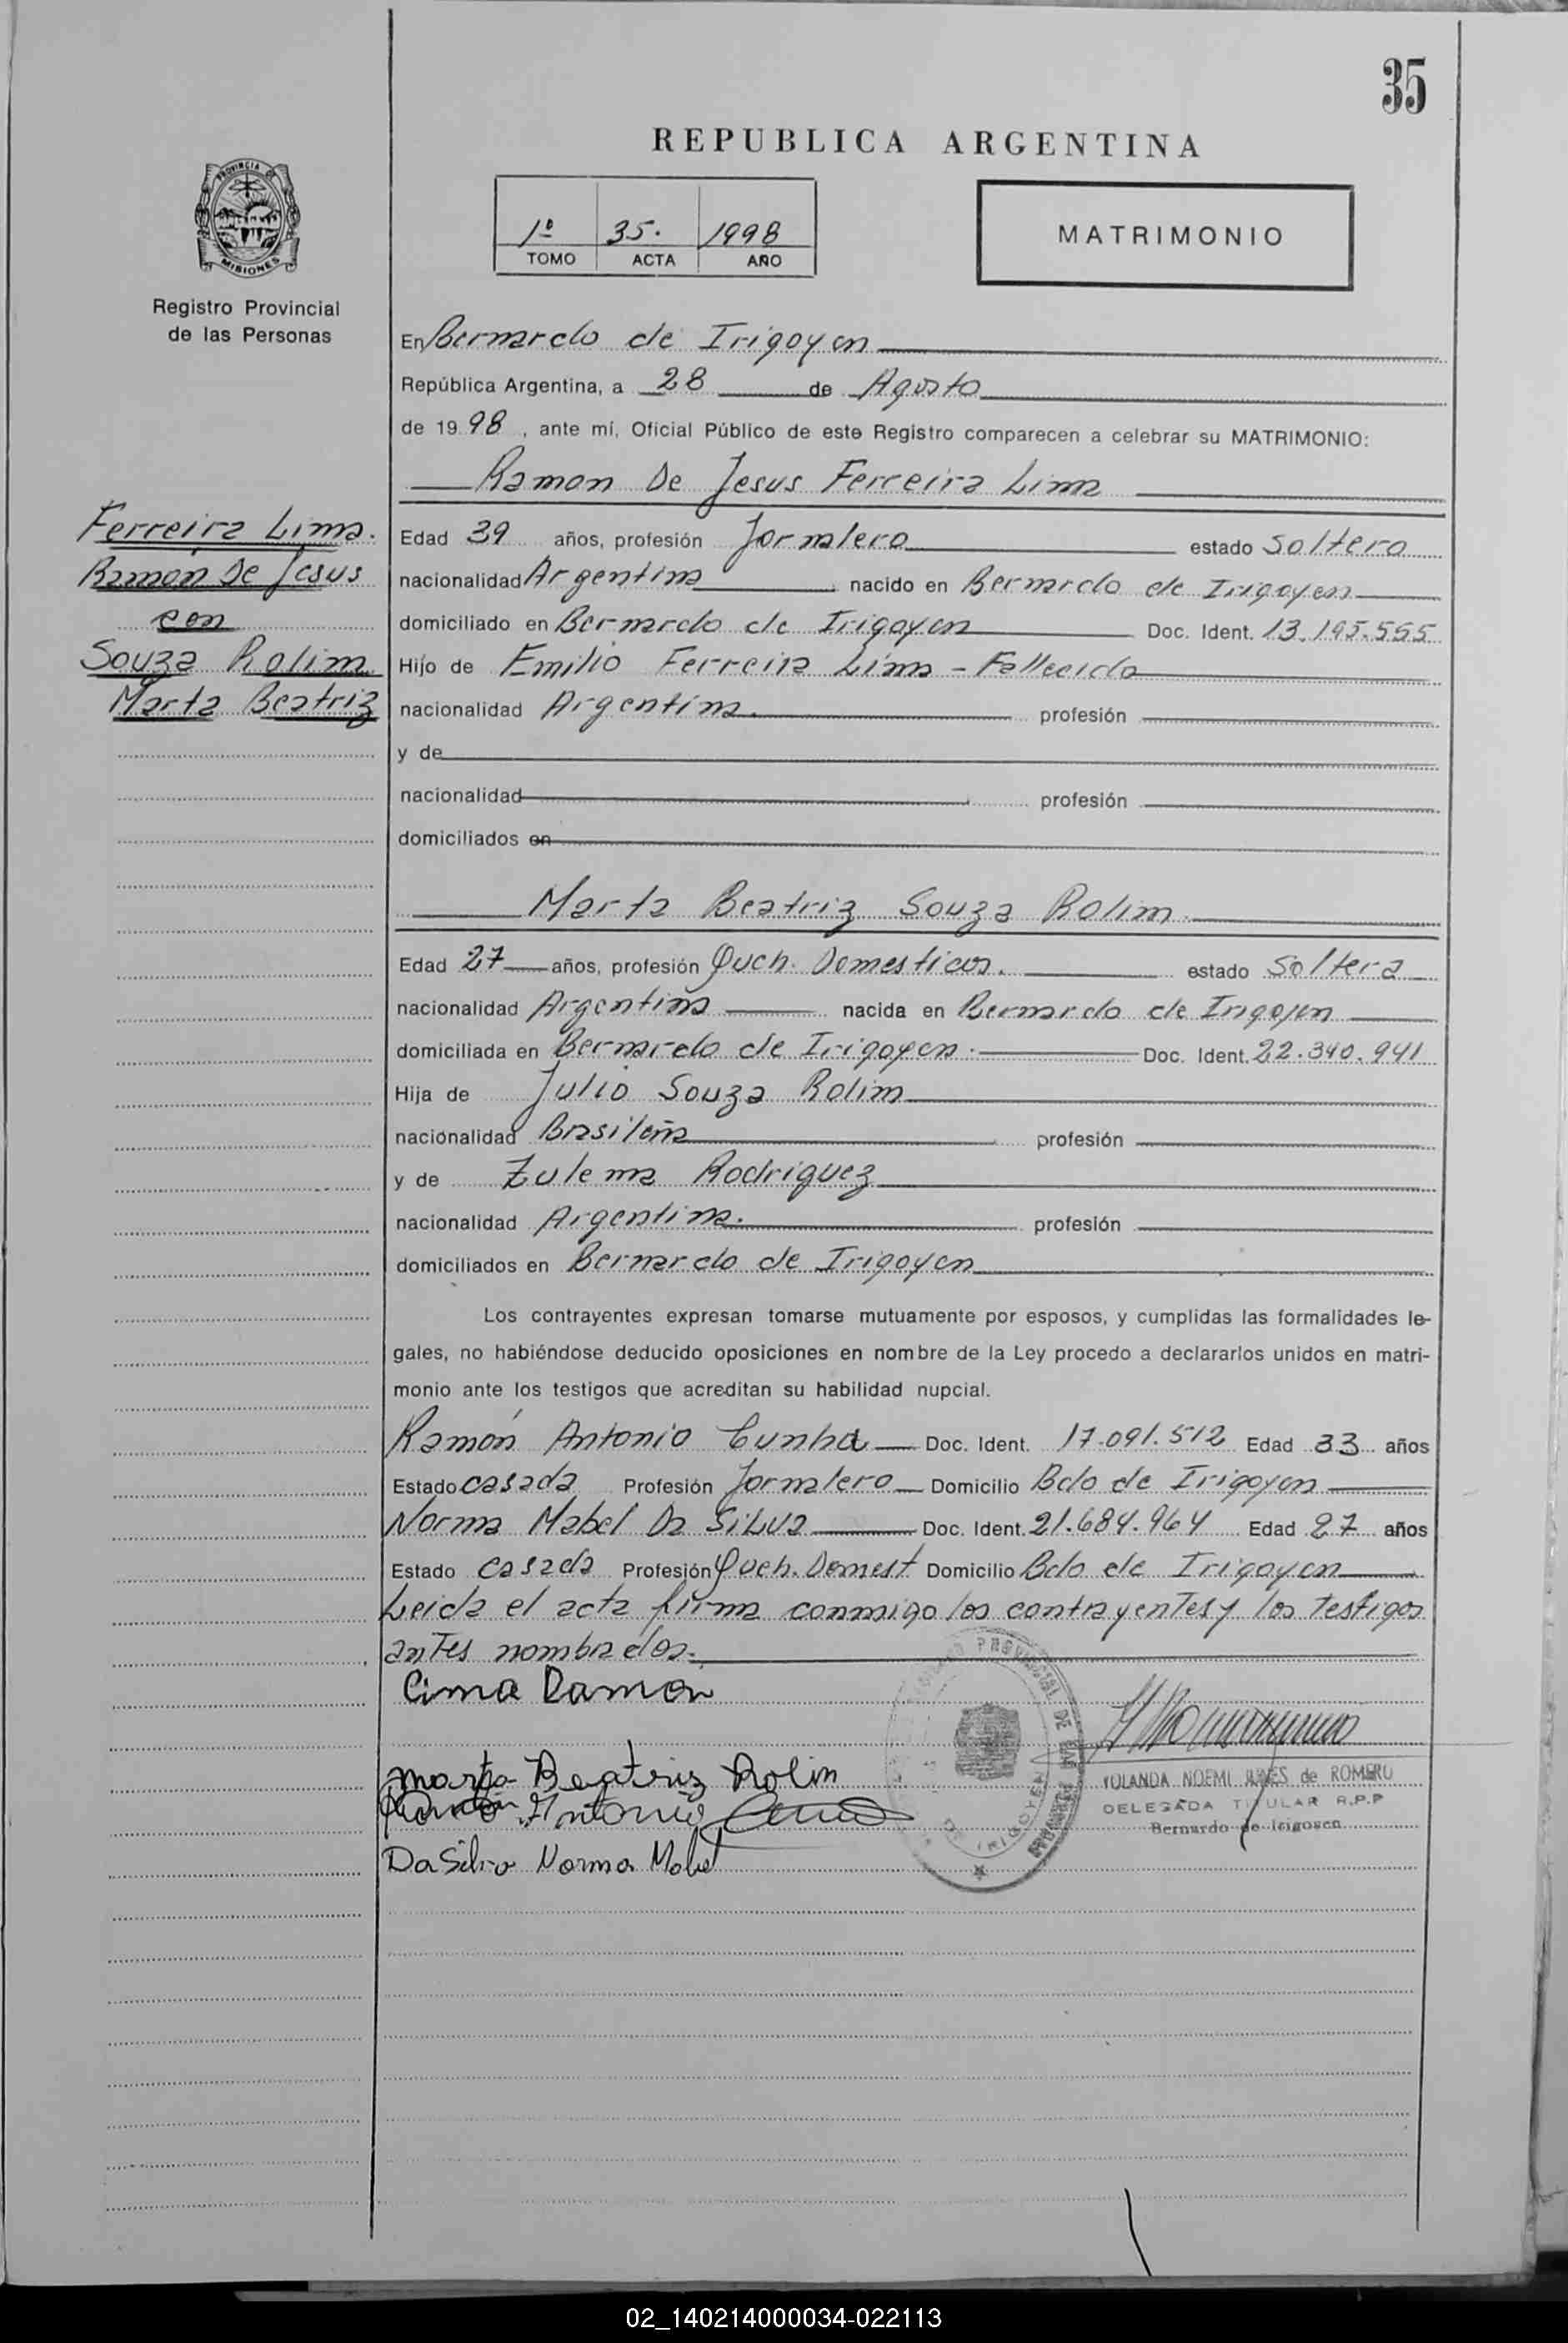 35
REPUBLICA ARGENTINA
PROVINCIA DE
MISIONES
Registro Provincial
de las Personas
1º 35. 1998
TOMO ACTA AÑO
MATRIMONIO
En Bernardo de Irigoyen
República Argentina, a 28 de Agosto
de 19 98, ante mí, Oficial Público de este Registro comparecen a celebrar su MATRIMONIO:
Ramon De Jesus Ferreira Lima
Ferreira Lima.
Ramón De Jesus
con
Souza Rolim
Marta Beatriz
Edad 39 años, profesión Jornalero estado Soltero
nacionalidad Argentina nacido en Bernardo de Irigoyen
domiciliado en Bernardo de Irigoyen Doc. Ident. 13.195.555
Hijo de Emilio Ferreira Lima - Fallecido
nacionalidad Argentina. profesión
y de
nacionalidad profesión
domiciliados en
Marta Beatriz Souza Rolim
Edad 27 años, profesión Queh. Domesticos. estado Soltera
nacionalidad Argentina nacida en Bernardo de Irigoyen
domiciliada en Bernardo de Irigoyen. Doc. Ident. 22.340.941
Hija de Julio Souza Rolim
nacionalidad Brasileña profesión
y de Zulema Rodriguez
nacionalidad Argentina. profesión
domiciliados en Bernardo de Irigoyen
Los contrayentes expresan tomarse mutuamente por esposos, y cumplidas las formalidades le-
gales, no habiéndose deducido oposiciones en nombre de la Ley procedo a declararlos unidos en matri-
monio ante los testigos que acreditan su habilidad nupcial.
Ramón Antonio Cunha Doc. Ident. 17.091.512 Edad 33 años
Estado casada Profesión Jornalero Domicilio Bdo de Irigoyen
Norma Mabel Da Silva Doc. Ident. 21.684.964 Edad 27 años
Estado casada Profesión Queh. Domest Domicilio Bdo de Irigoyen
Leida el acta firma conmigo los contrayentes y los testigos
antes nombrados.
Lima Ramon
Marta Beatriz Rolin
Antonio
Da Silva Norma Mabel
PROVINCIAL DE LAS PERSONAS
DE IRIGOYEN
YOLANDA NOEMI de ROMERO
DELEGADA TITULAR R.P.P
Bernardo de Irigoyen
02_140214000034-022113